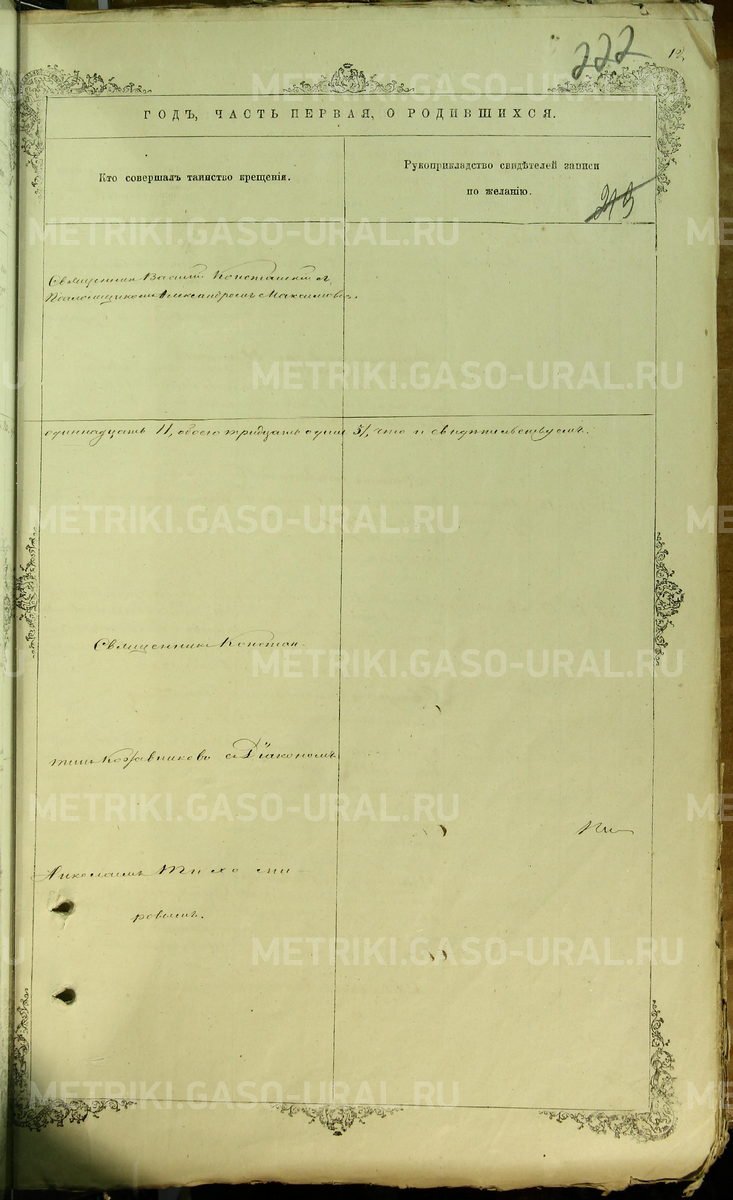 222
12
ГОДЪ, ЧАСТЬ ПЕРВАЯ, О РОДИВШИХСЯ.
Кто совершалъ таинство крещенія.
Рукоприкладство свидѣтелей записи
по желанію.
213
Священникъ Василій съ
Псаломщикомъ Александромъ Максимовымъ.
одиннадцать 11, обоего тридцать одинъ 31, что и свидѣтельствуемъ.
Священникъ Констан-
тинъ Кожевниковъ съ Діакономъ
Николаемъ Тихоми-
ровымъ.
METRIKI.GASO-URAL.RU